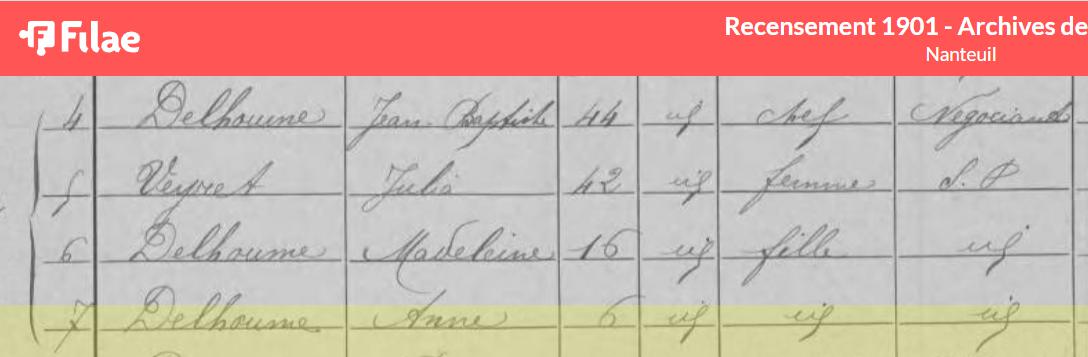 Filae
Recensement 1901 - Archives de
Nanteuil
4 Delhoume Jean Baptiste 44 id chef Négociant
5 Veyret Julia 42 id femme S. P
6 Delhoume Madeleine 16 id fille id
7 Delhoume Anne 6 id id id